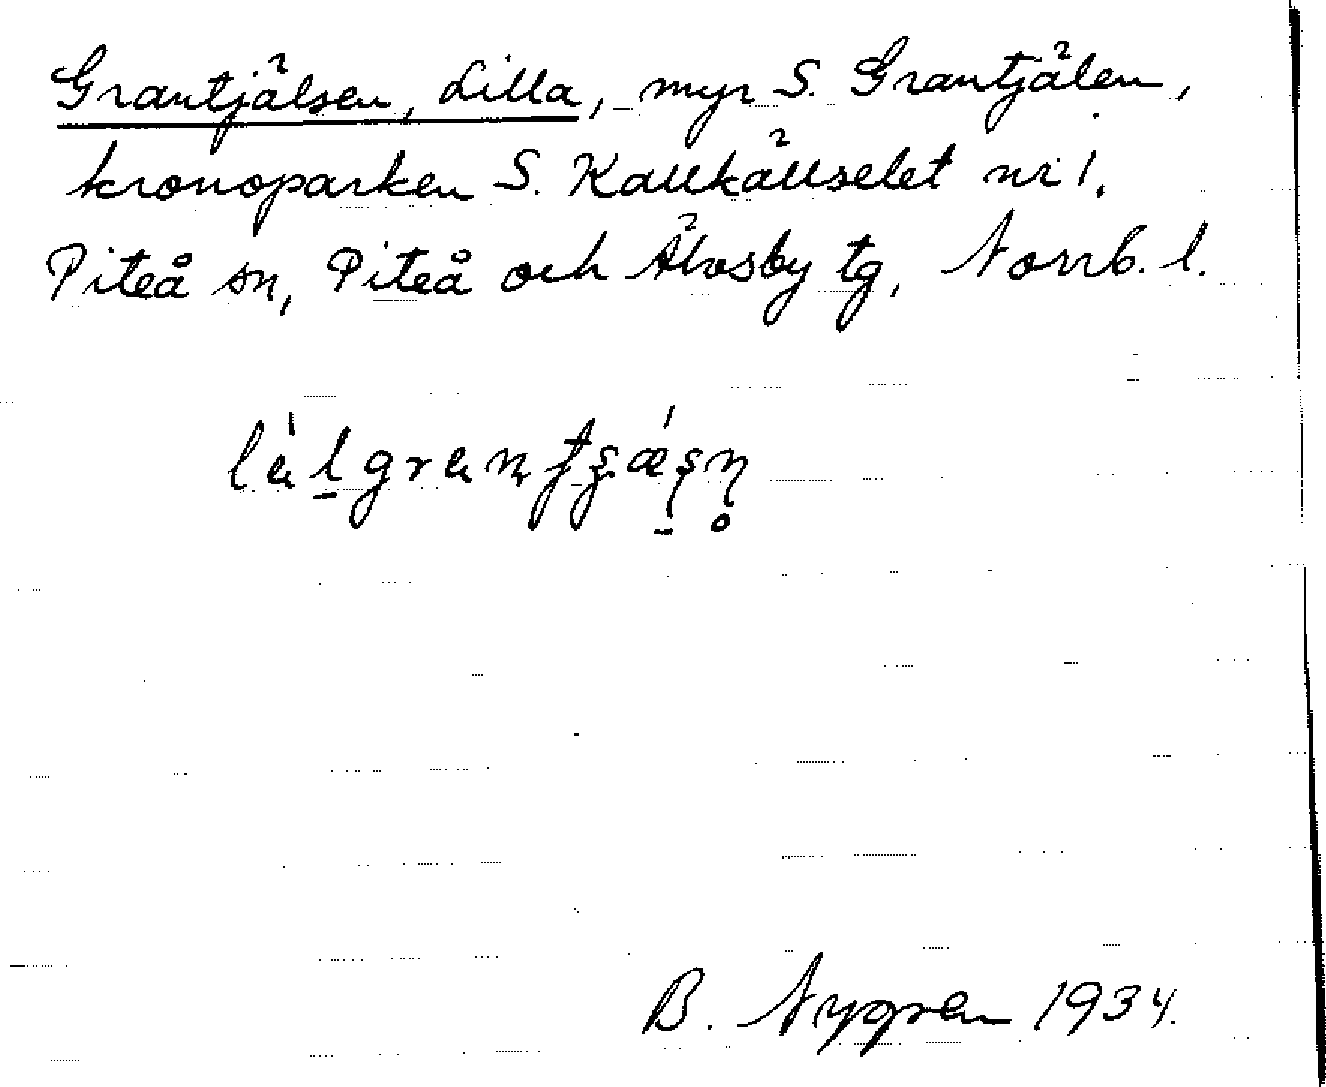 Grantjälsen, Lilla, myr S. Grantjälen,
kronoparken S. Kallkällselet nr 1.
Piteå sn, Piteå och Älvsby tg, Norrb. l.
B. Nygren 1934.